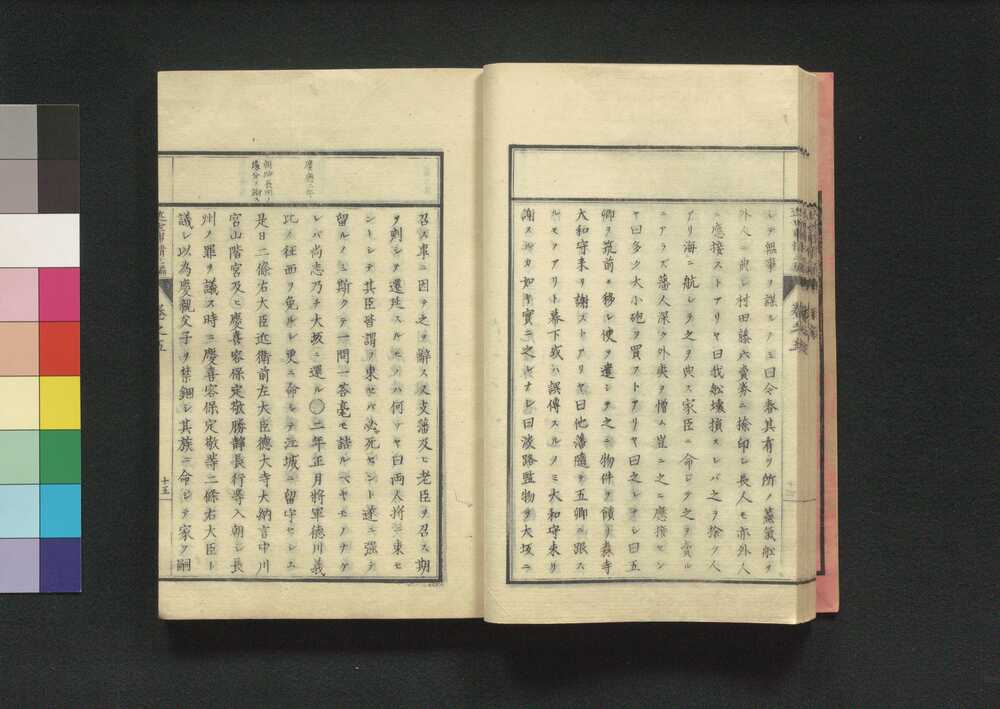 シテ無事ヲ謀シノミ曰今春其有ツ所ノ蒸氣舩ヲ
外人ニ典シ村田藤六賣券ニ捺印シ長人モ亦外人
ニ應接ストアリヤ曰我舩壊損スレバ之ヲ捨ク人
アリ海ニ航シテ之ヲ典ス家臣ニ命シテ之ヲ賣ル
ニアラズ藩人深ク外夷ヲ憎ム豈ニ之ニ應接セン
ヤ曰多ク大小砲ヲ買フトアリヤ曰之レナシ曰五
卿ヲ筑前ニ移シ使ヲ遣シテ之ニ物件ヲ饋リ森寺
大和守来リ謝ストアリヤ曰他藩隨テ五卿ニ跟ス
ルモノアリト幕下或ハ誤傳スルノミ大和守来リ
謝スル如キ實ニ之レナシ曰淡路監物ヲ大坂ニ
慶應二年
朝助長州ノ
處分ヲ議ス
召ス事ニ因テ之ヲ辭ス又支藩及ヒ老臣ヲ召ス期
ヲ刺シテ遷延スルモノハ何ソヤ曰両人將ニ東セ
ントシテ其臣皆謂ヲ東セバ必死セント遮ニ強テ
留ルノミ斯クテ一問一答毫モ詰ルベキモノナケ
レバ尚志乃チ大坂ニ還ル〇二年正月將軍徳川義
比ノ征西ヲ免ルシ更ニ命シテ江城ニ留守セシム
是日二條右大臣近衛前左大臣徳大寺大納言中川
宮山階宮及ヒ慶喜容保定敬勝靜長行等入朝シ長
州ノ罪ヲ議ス時ニ慶喜容保定敬等二條右大臣ト
議シ以為慶親父子ヲ禁錮シ其族ニ命シテ家ヲ嗣
卷之五
十五